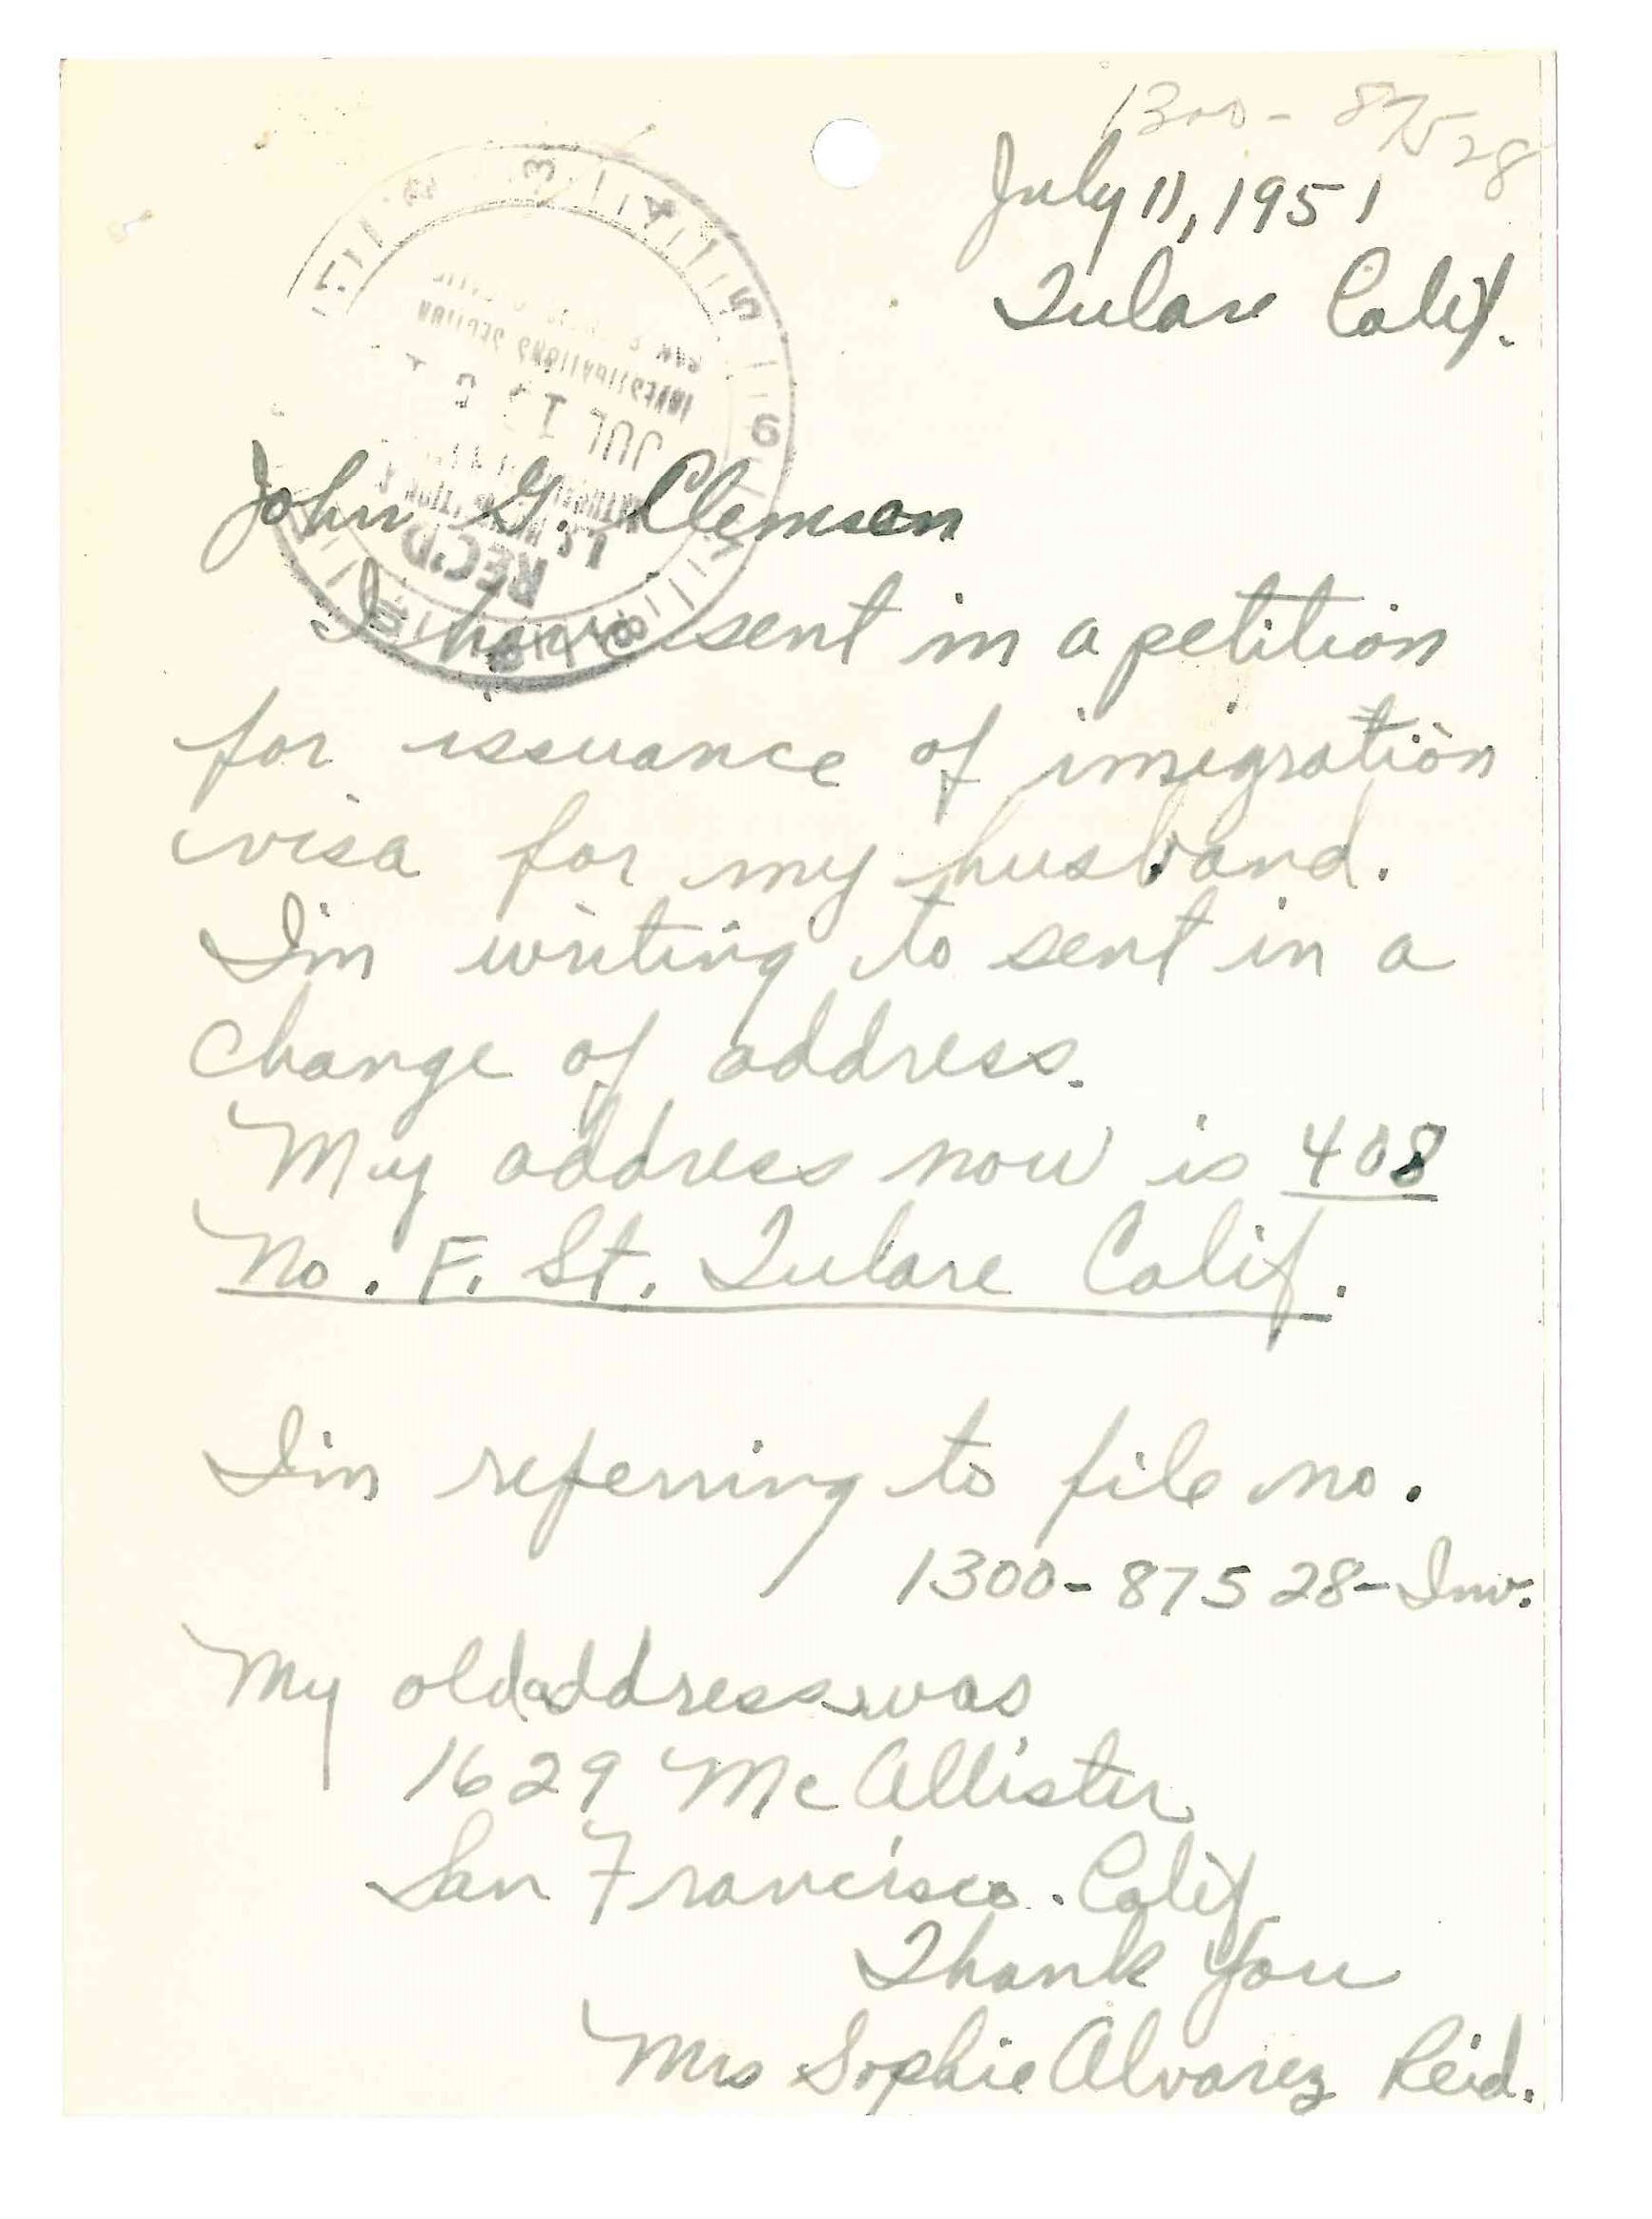 1300-87528
July 11, 1951
Tulare Calif.
REC'D
JUL 1
INVESTIGATIONS SECTION
John G. Clemson
I have sent in a petition
for issuance of imigration
visa for my husband.
I'm writing to sent in a
change of address.
My address now is 408
No. F. St. Tulare Calif.
I'm referring to file no.
1300-87528-Inv.
My old address was
1629 McAllister
San Francisco. Calif
Thank You
Mrs Sophie Alvarez Reid.